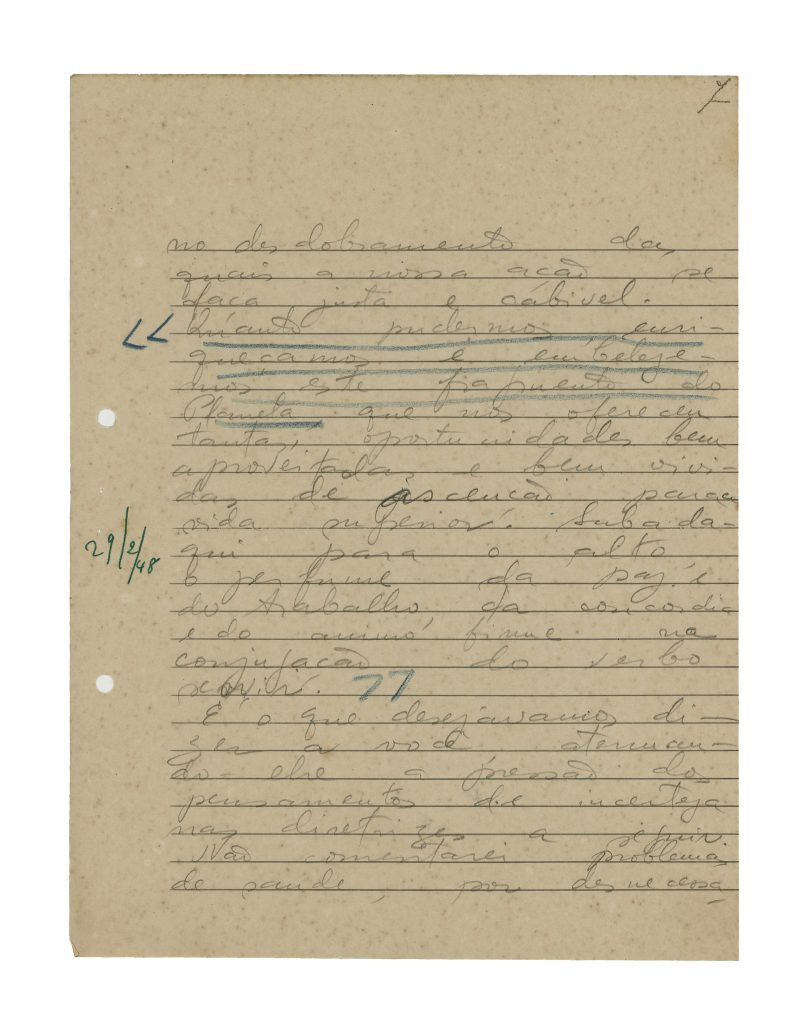 7
no desdobramento da
quais a nossa acão se
faca justa e cábivel.
<< Quanto pudermos, enri-
queçamos e embeleze-
mos este fragmento do
Planeta que nos oferecem
tantas oportunidades bem
aproveitadas e bem vivi-
das de ascencão para a
vida superior. Suba da-
29/2/48
qui para o alto,
o perfume da paz e
do trabalho, da concordia
e do animo firme na
conjugacão do verbo
servir. >>
É o que desejávamos di-
zer a você atenuan-
do-lhe a pressão dos
pensamentos de incerteza
nas diretrizes a seguir.
Não comentarei problemas
de saude, por desnecessa